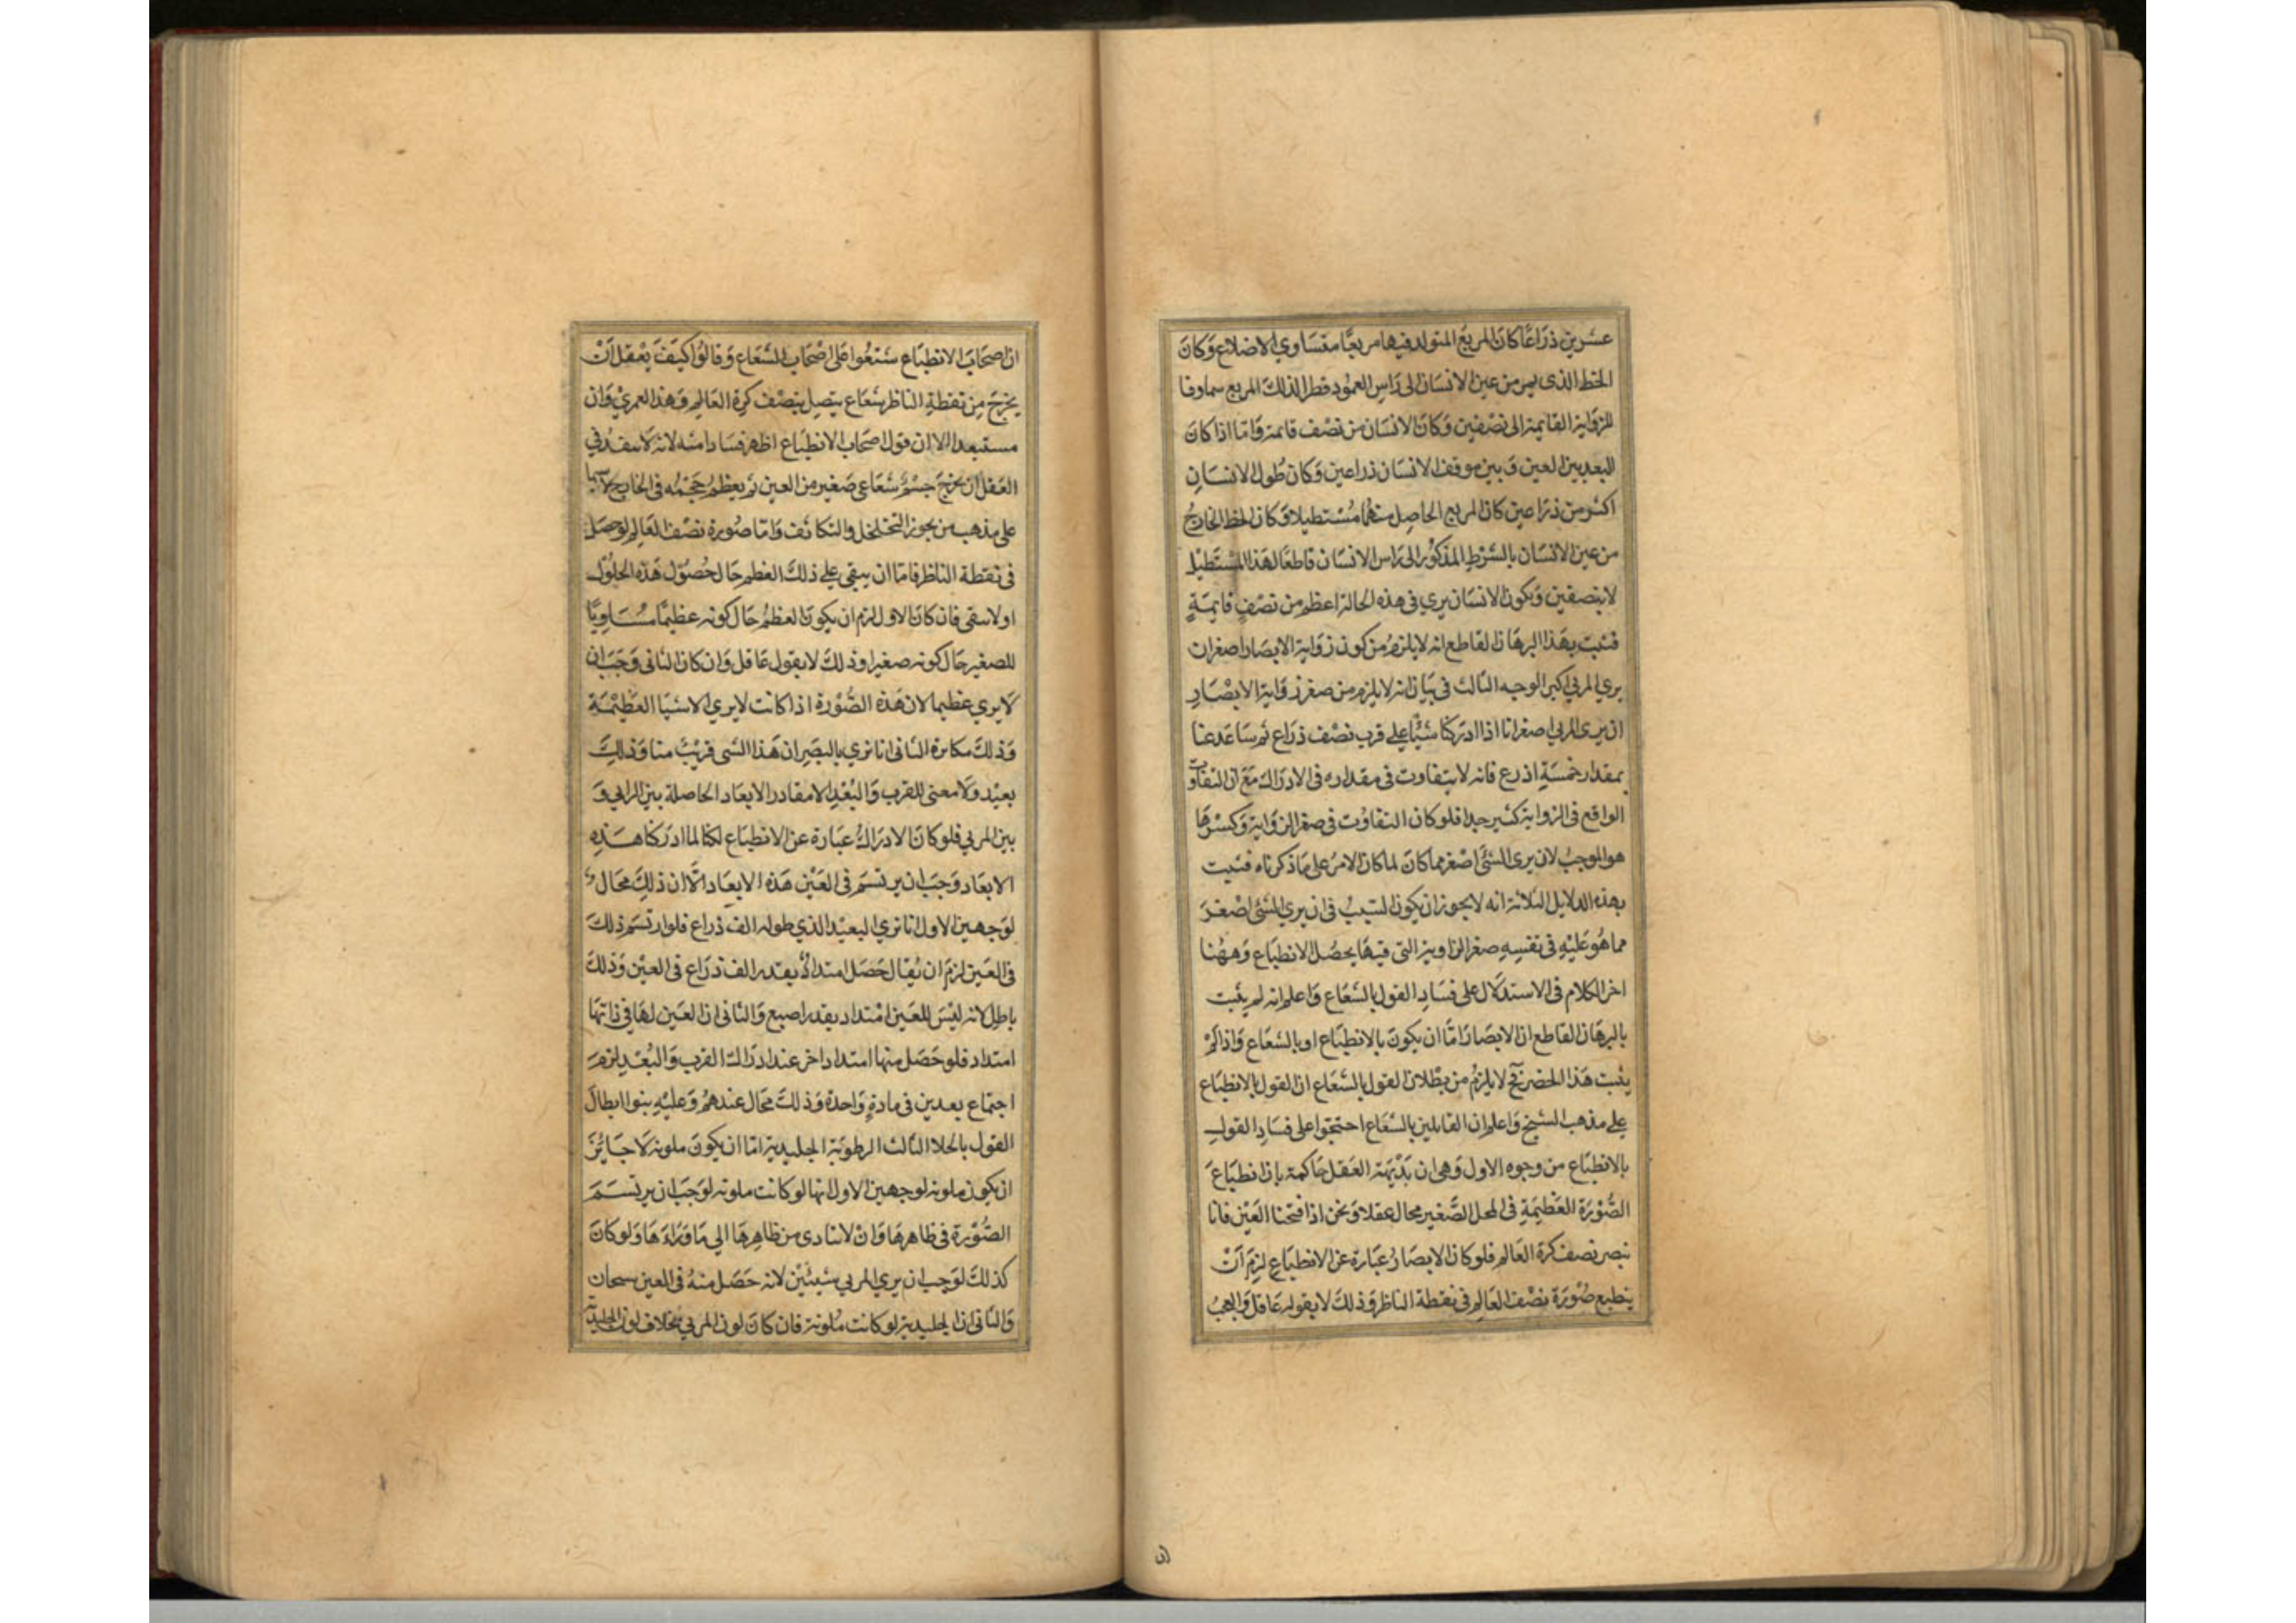 عشرين ذراعًا كان المربع المتولد فيها مربعًا متساوي الاضلاع وكان
الخط الذى يمر من عين الانسان الى راس العمود قطرا لذلك المربع
للزواية القايمة الى نصفين وكان الانسان من نصف قائمة واما اذا كان
البعد بين العين و بين موقف الانسان ذراعين وكان طول الانسان
اكثر من ذراعين كان المربع الحاصل منهما مستطيلا وكان الخط الخارج
من عين الانسان بالشرط المذكور الى راس الانسان قاطعا لهذا المستطيل
لا بنصفين ويكون الانسان يري فى هذه الحالة اعظم من نصف قايمة
فثبت بهذا البرهان القاطع انه لا يلزم من كون زواية الابصار اصغر ان
يري المرئي اكبر الوجه الثالث فى بيان انه لا يلزم من صغر زواية الابصار
ان يرى المرئي اصغر انا اذا ادركنا شيئا على قرب نصف ذراع ثم تباعد عنا
بمقدار خمسة اذرع فانه لا يتفاوت فى مقداره فى الادراك مع ان التفاوت
الواقع فى الزواية كثير جدا فلو كان التفاوت فى صغر الزواية وكبرها
هو الموجب لان يرى الشئ اصغر مما كان لما كان الامر على ما ذكرناه فثبت
بهذه الدلايل الثلاثة انه لا يجوز ان يكون السبب فى ان يري الشئ اصغر
مما هو عليه فى نفسه صغر الزاوية التى فيها يحصل الانطباع وههنا
اخر الكلام فى الاستدلال على فساد القول بالشعاع واعلم انه لم يثبت
بالبرهان القاطع ان الابصار اما ان يكون بالانطباع او بالشعاع واذا لم
يثبت هذا الحصر فح لا يلزم من بطلان القول بالشعاع ان القول بالانطباع
على مذهب الشيخ واعلم ان القايلين بالشعاع احتجوا على فساد القول
بالانطباع من وجوه الاول وهى ان بديهة العقل حاكمة بان انطباع
الصورة العظيمة فى المحل الصغير محال عقلا ونحن اذا فتحنا العين فانا
نبصر نصف كرة العالم فلو كان الابصار عبارة عن الانطباع لزم ان
ينطبع صورة نصف العالم فى نقطة الناظر وذلك لا يقوله عاقل والعجب
ان اصحاب الانطباع شنعوا على اصحاب الشعاع وقالوا كيف يعقل ان
يخرج من نقطة الناظر شعاع يتصل بنصف كرة العالم وهذا لعمري وان
مستبعدا الا ان قول اصحاب الانطباع اظهر فسادا منه لانه لا يبعد في
العقل ان يخرج جسم شعاعي صغير من العين ثم يعظم حجمه فى الخارج لا سيما
على مذهب من يجوز التخلخل والتكاثف واما صورة نصف العالم لو حصل
فى نقطة الناظر فاما ان يبقى على ذلك العظم حال حصول هذه الحلول
او لا يبقى فان كان الاول لزم ان يكون العظم حال كونه عظيما مساويا
للصغير حال كونه صغيرا وذلك لا يقول عاقل وان كان الثانى وجب ان
لا يري عظيما لان هذه الصورة اذا كانت لا يري الاشيا العظيمة
وذلك مكابرة الثانى انا نري بالبصر ان هذا الشى قريب منا وذلك
بعيد ولا معنى للقرب والبعد الا مقادر الابعاد الحاصلة بين الرايي و
بين المرئي فلو كان الادراك عبارة عن الانطباع لكنا لما ادركنا هذه
الابعاد وجب ان يرتسم فى العين هذه الابعاد الا ان ذلك محال
لوجهين الاول انا نري البعيد الذي طوله الف ذراع فلو ارتسم ذلك
فى العين لزم ان يقال حصل امتداد بقدر الف ذراع فى العين وذلك
باطل لانه ليس للعين امتداد بقدر اصبع والثانى ان العين لها في ذاتها
امتداد فلو حصل منها امتداد اخر عند ادراك القرب والبعد لزم
اجتماع بعدين فى مادة واحدة وذلك محال عندهم وعليه بنوا ابطال
القول بالخلا الثالث الرطوبة الجليدية اما ان يكون ملونة لا جايز
ان يكون ملونة لوجهين الاول انها لو كانت ملونة لوجب ان يرتسم
الصورة فى ظاهرها وان لا تتادى من ظاهرها الي ما وراءها ولو كان
كذلك لوجب ان يري المرئي شيئين لانه حصل منه فى العين سبحان
والثانى ان الجليدية لو كانت ملونة فان كان لون المرئي بخلاف لون الجليدية